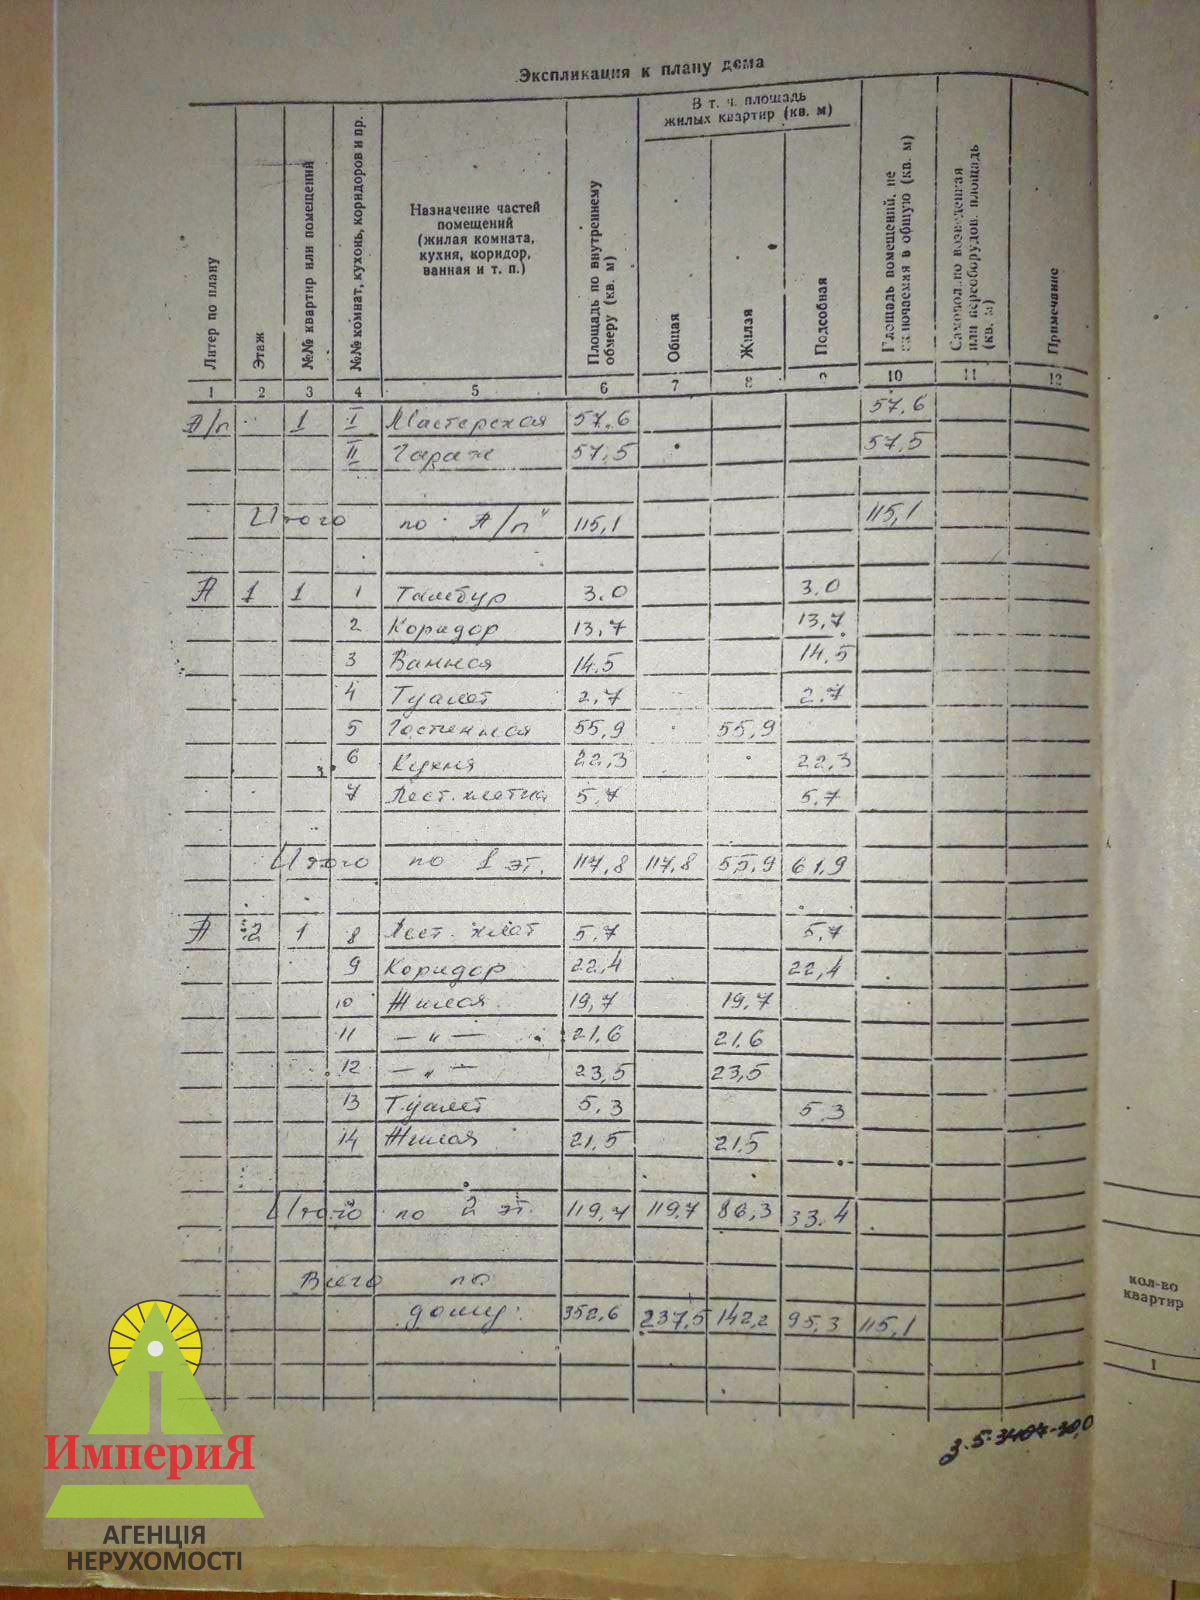 Экспликация к плану дома
Литер по плану
Этаж
№№ квартир или помещений
№№ комнат, кухонь, коридоров и пр.
Назначение частей
помещений
(жилая комната,
кухня, коридор,
ванная и т. п.)
Площадь по внутреннему
обмеру (кв. м)
В т. ч. площадь
жилых квартир (кв. м)
Общая
Жилая
Подсобная
Площадь помещений, не
включаемая в общую (кв. м)
Самовольно возведенная
или переоборудов. площадь
(кв. м)
Примечание
1 2 3 4 5 6 7 8 9 10 11 12
А/п 1 I Мастерская 57,6 57,6
II Гараж 57,5 57,5
Итого по А/п" 115,1 115,1
А 1 1 1 Тамбур 3.0 3.0
2 Коридор 13,7 13,7
3 Ванная 14.5 14,5
4 Туалет 2,7 2,7
5 Гостенная 55,9 55,9
6 Кухня 22,3 22,3
7 Лест. клетка 5,7 5,7
Итого по 1 эт. 117,8 117,8 55,9 61,9
А 2 1 8 Лест. клет 5,7 5,7
9 Коридор 22,4 22,4
10 Жилая 19,7 19,7
11 — „ — 21,6 21,6
12 — „ — 23,5 23,5
13 Туалет 5,3 5,3
14 Жилая 21,5 21,5
Итого по 2 эт. 119,7 119,7 86,3 33,4
Всего по
дому: 352,6 237,5 142,2 95,3 115,1
кол-во
квартир
1
ИмпериЯ
АГЕНЦІЯ
НЕРУХОМОСТІ